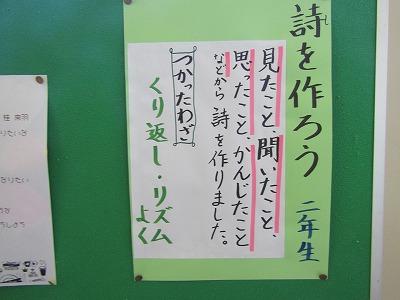 詩を作ろう 二年生
見たこと、聞いたこと、
思ったこと、かんじたこと
などから 詩を作りました。
つかったわざ
くり返し・リズムよく